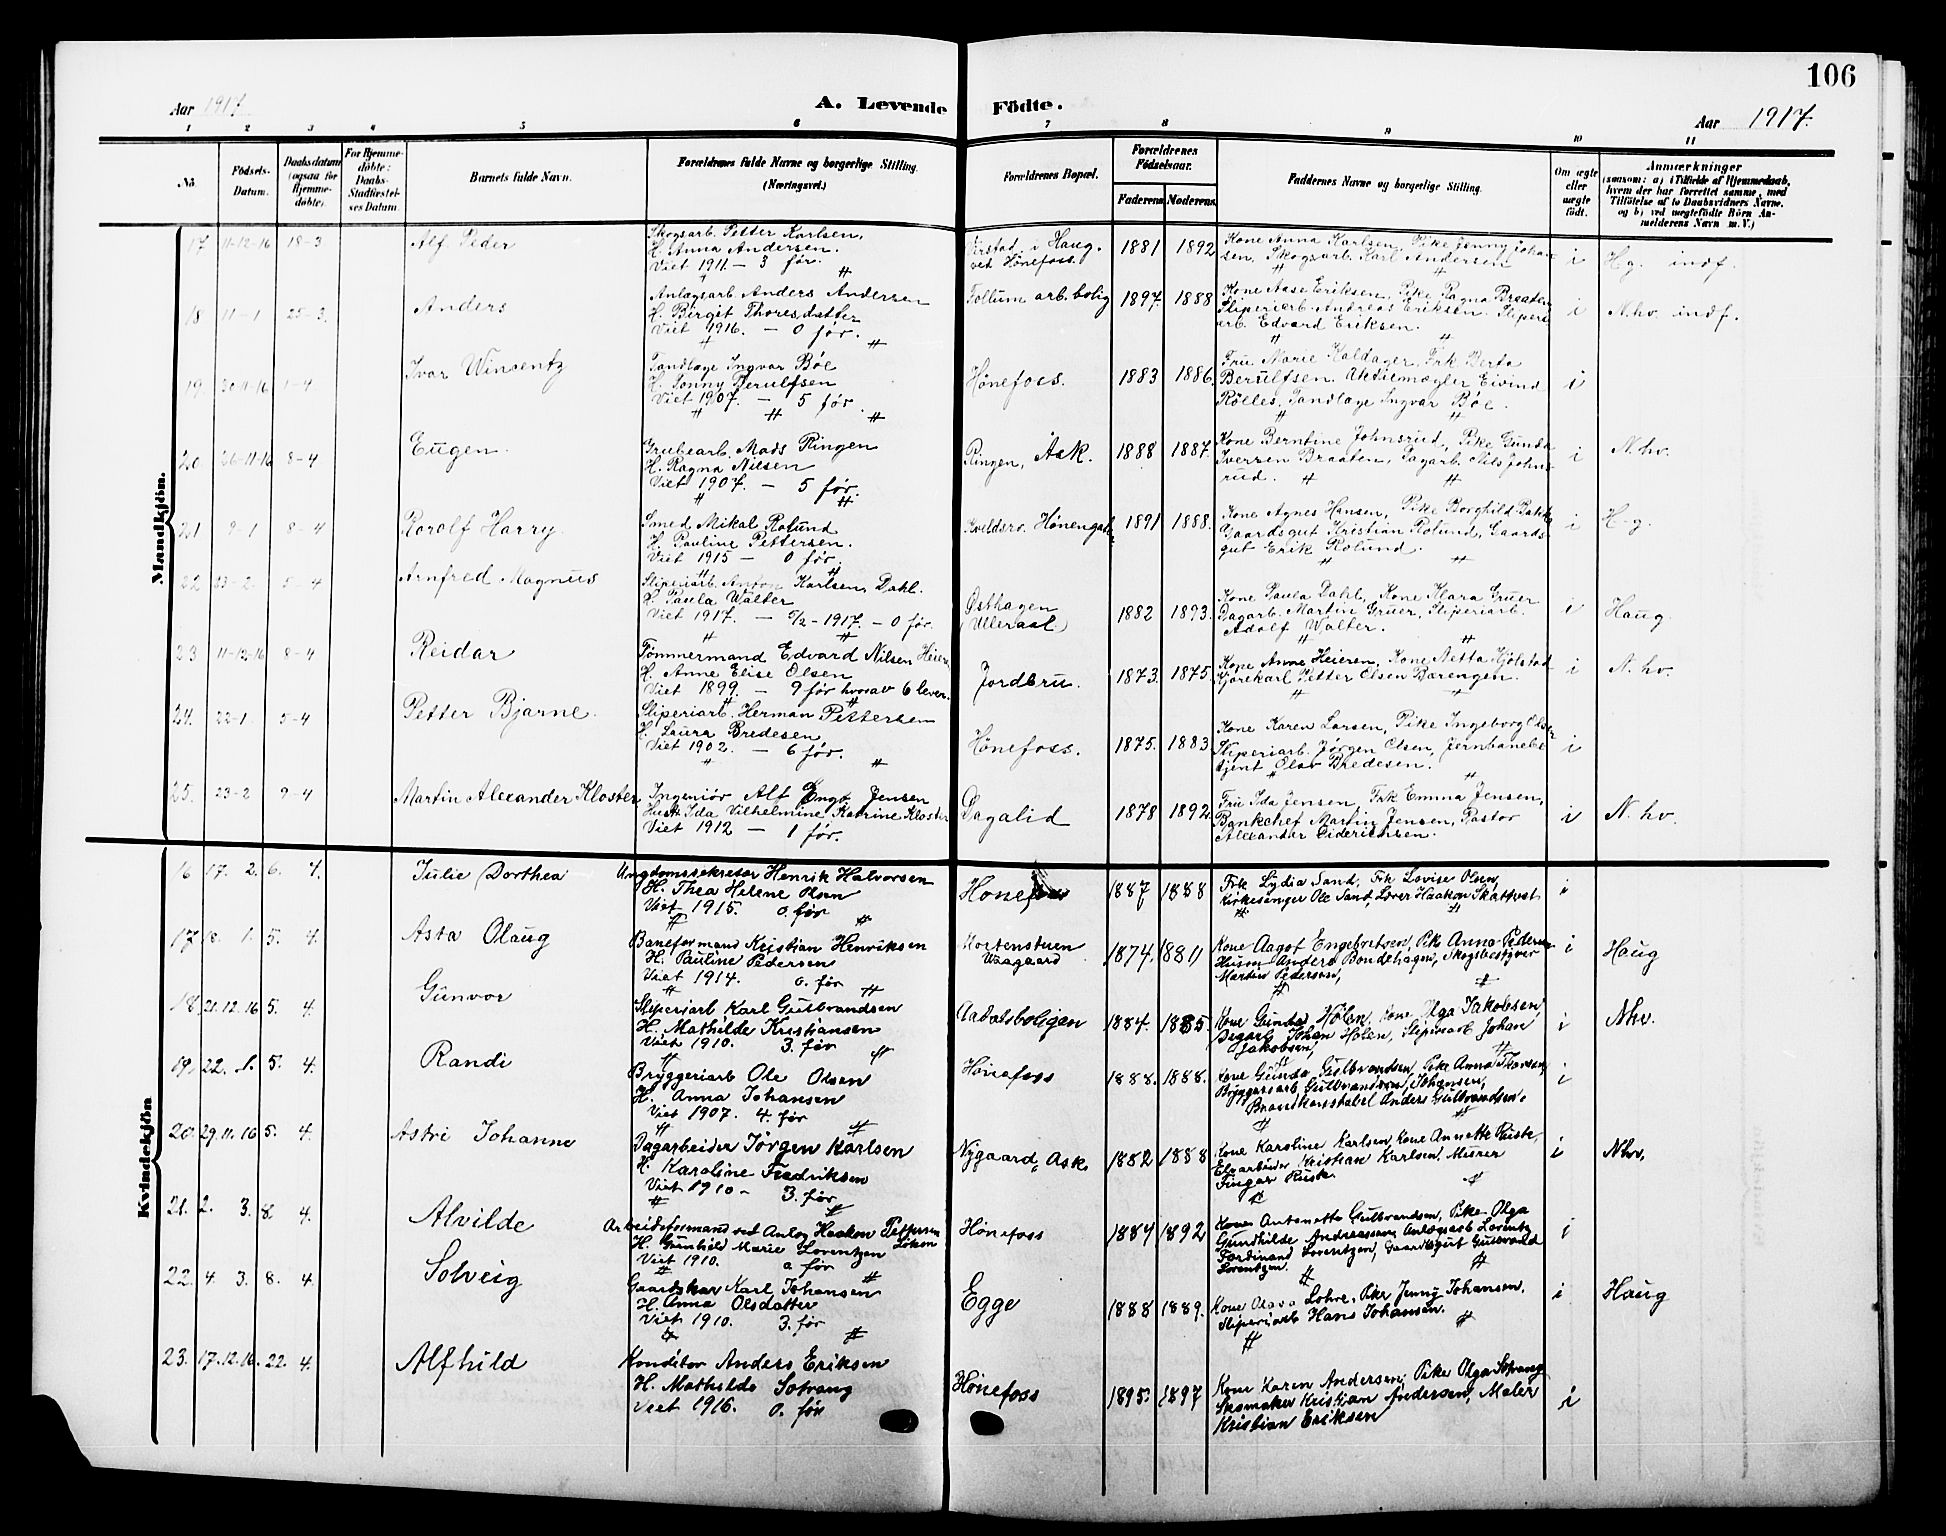 106
Aar 1917
A. Levende Födte.
Aar 1917.
1 2 3 4 5 6 7 8 9 10 11
No.
Födsels-
Datum.
Daabsdatum
(ogsaa for
Hjemme-
döbte).
For Hjemme-
döbte:
Daabs-
Stadfæstel-
ses Datum.
Barnets fulde Navn.
Forældrenes fulde Navne og borgerlige Stilling
(Næringsvei.)
Forældrenes Bopæl.
Forældrenes
Födselsaar.
Faderens Moderens
Faddernes Navne og borgerlige Stilling.
Om ægte
eller
uægte
født.
Anmærkninger
(saasom: a) i Tilfælde af Hjemmedaab,
hvem der har forrettet samme, med
Tilföielse af to Daabsvidners Navne.
og b) ved uægtefödte Börn An-
melderens Navn m. V.)
Mandkjön.
17 11-12-16 18-3 Alf Peder
Skogsarb. Petter Karlsen,
H. Anna Andersen.
Viet 1911 - 3 før.
i Haug.
ved Hønefoss.
1881 1892
Kone Anna Karlsen, Pike Jenny Johan-
sen, Skogsarb. Karl Andersen
i H.g. indf.
18 11-1 25-3 Anders
Anlægsarb. Anders Andersen
H. Birgit Thoresdatter
Viet 1916. - 0 før.
Follum arb. bolig
1897. 1888
Kone Aase Eriksen, Pike Ragna Braaten
Sliperiarb. Andreas Eriksen. Sliperi
arb. Edvard Eriksen.
i N.hv. indf.
19. 30-11-16 1-4 Ivar Winsentz
Tandlæge Ingvar Bõe
H. Jonny Berulfsen
Viet 1907. - 5 før
Hønefoss.
1883 1886.
Fru Marie Kaldager, Frk Berta
Berulfsen. Aktiemægler Eivind
Rølles, Tandlæge Ingvar Bõe.
i
20. 26-11-16 8-4 Eugen.
Grubearb. Mads Ringen
H. Ragna Nilsen
Viet 1907. - 5 før.
Ringen, Aak.
1888 1887.
Kone Berntine Johnsrud, Pike Gunda
Iversen Braaten, Dagarb. Nils Johns-
rud.
i N. hv.
21 9-1 8-4 Rorolf Harry.
Smed Mikal Rolund
H. Pauline Pettersen.
Viet 1915 - 0 før.
Hønengat.
1891 1888.
Kone Agnes Hansen, Pike Borghild Bakke
Gaardsgut Kristian Rolund, Gaards-
gut Erik Rolund.
i H-g.
22 23-2. 5-4 Arnfred Magnus
Sliperiarb. Anton Karlsen Dahl.
H. Paula Walter
Viet 1917. - 5/2-1917. - 0 før.
Østhagen
(Ulleraal)
1882 1893.
Kone Paula Dahl, Kone Klara Gruer
Dagarb. Martin Gruer, Sliperiarb.
Adolf Walter.
i Haug.
23 11-12-16 8-4 Reidar
Tømmermand Edvard Nilsen Heieren
H. Anne Elise Olsen
Viet 1899. - 9 før hvorav 6 lever.
Jordbru.
1873. 1875.
Kone Anne Heieren, Kone Netta Kjølstad
Kjørekarl Petter Olsen Bærengen.
i N. hv.
24. 22-1. 5-4 Petter Bjarne.
Sliperiarb. Herman Pettersen
H. Laura Bredesen
Viet 1902. - 6 før.
Hønefoss.
1875. 1883
Kone Karen Larsen, Pike Ingeborg Olsen
Sliperiarb. Jørgen Olsen, Jernbanebe-
tjent Olav Bredesen.
i
25. 23-2 9-4 Martin Alexander Kloster
Ingeniør Alf Engt Jensen
Hustr. Ida Vilhelmine Katrine Kloster
Viet 1912 - 1 før.
Dagalid
1878 1892
Fru Ida Jensen, Frk Emma Jensen,
Bankchef Martin Jensen, Pastor
Alexander Diderichsen.
i N. hv.
Kvindekjön
16 17. 2. 6. 4. Julie Dorthea
Ungdomssekretær Henrik Halvorsen
H. Thea Helene Olsen
Viet 1915. 0. før
Hønefoss
1887 1888
Frk Lydia Sand, Frk Lovise Olsen,
Kirkesanger Ole Sand, Lærer Haakon Skattvest
i
17 18. 1. 5. 4. Asta Olaug
Baneformand Kristian Henriksen
H. Pauline Pedersen
Viet 1914. 0. før
Mortenstuen
Waagaard
1874. 1881
Kone Aagot Engebretsen, Pike Anna Pedersen
Husm Anders Bondehagen, Skogsbestyrer
Martin Pedersen,
i Haug
18 21. 12. 16 5. 4. Gunvor
Sliperiarb Karl Gulbrandsen
H. Mathilde Kristiansen
Viet 1910. 3. før
Aadalsboligen
1884. 1885.
Kone Gunda Hølen, Kone Olga Jakobsen,
Dagarb Johan Hølen, Sliperiarb Johan
Jakobsen,
i Nhv.
19. 22. 1. 5. 4. Randi
Bryggeriarb Ole Olsen
H. Anna Johansen
Viet 1907. 4. før
Hønefoss
1888. 1888.
Kone Gunda Gulbrandsen, Pike Anna Thoresen,
Bryggeriarb Gulbrandsen Johansen,
Brandkonstabel Anders Gulbrandsen.
i
20. 29. 11. 16 5. 4. Astri Johanne
Dagarbeider Jörgen Karlsen
H. Karoline Fredriksen
Viet 1910 - 3. før
Nygaard, Ask.
1882 1888
Kone Karoline Karlsen, Kone Annette Rusti,
Elvarbeider Kristian Karlsen, Murer
Fingar Rusti
i Nhv,
21. 2. 3. 8. 4. Alvilde
Arbeidsformand ved Anlæg Haakon Pettersen
H. Gunhild Marie Lorentzen Loken
Viet 1910. 0 før
Hönefoss
1884 1892
Kone Antonette Gulbrandsen, Pike Olga
Gundhilde Andreassen, Anlægsarb Lorentz
Ferdinand Lorentzen, Gaardsgut Gulbrand
Lorentzen.
i
22. 4. 3. 8. 4. Solveig
Gaardskar Karl Johansen
H. Anna Olsdatter
Viet 1910. 3. før
Egge
1888 1889.
Kone Olava Lohre, Pike Jenny Johansen,
Sliperiarb Hans Johansen.
i Haug
23. 17. 12. 16. 22. 4. Alfhild
Konditor Anders Eriksen
H. Mathilde Solvang
Viet 1916. 0. før
Hönefoss
1895. 1897
Kone Karen Andersen, Pike Olga Solvang
Skomaker Kristian Andersen, Maler
Kristian Eriksen
i